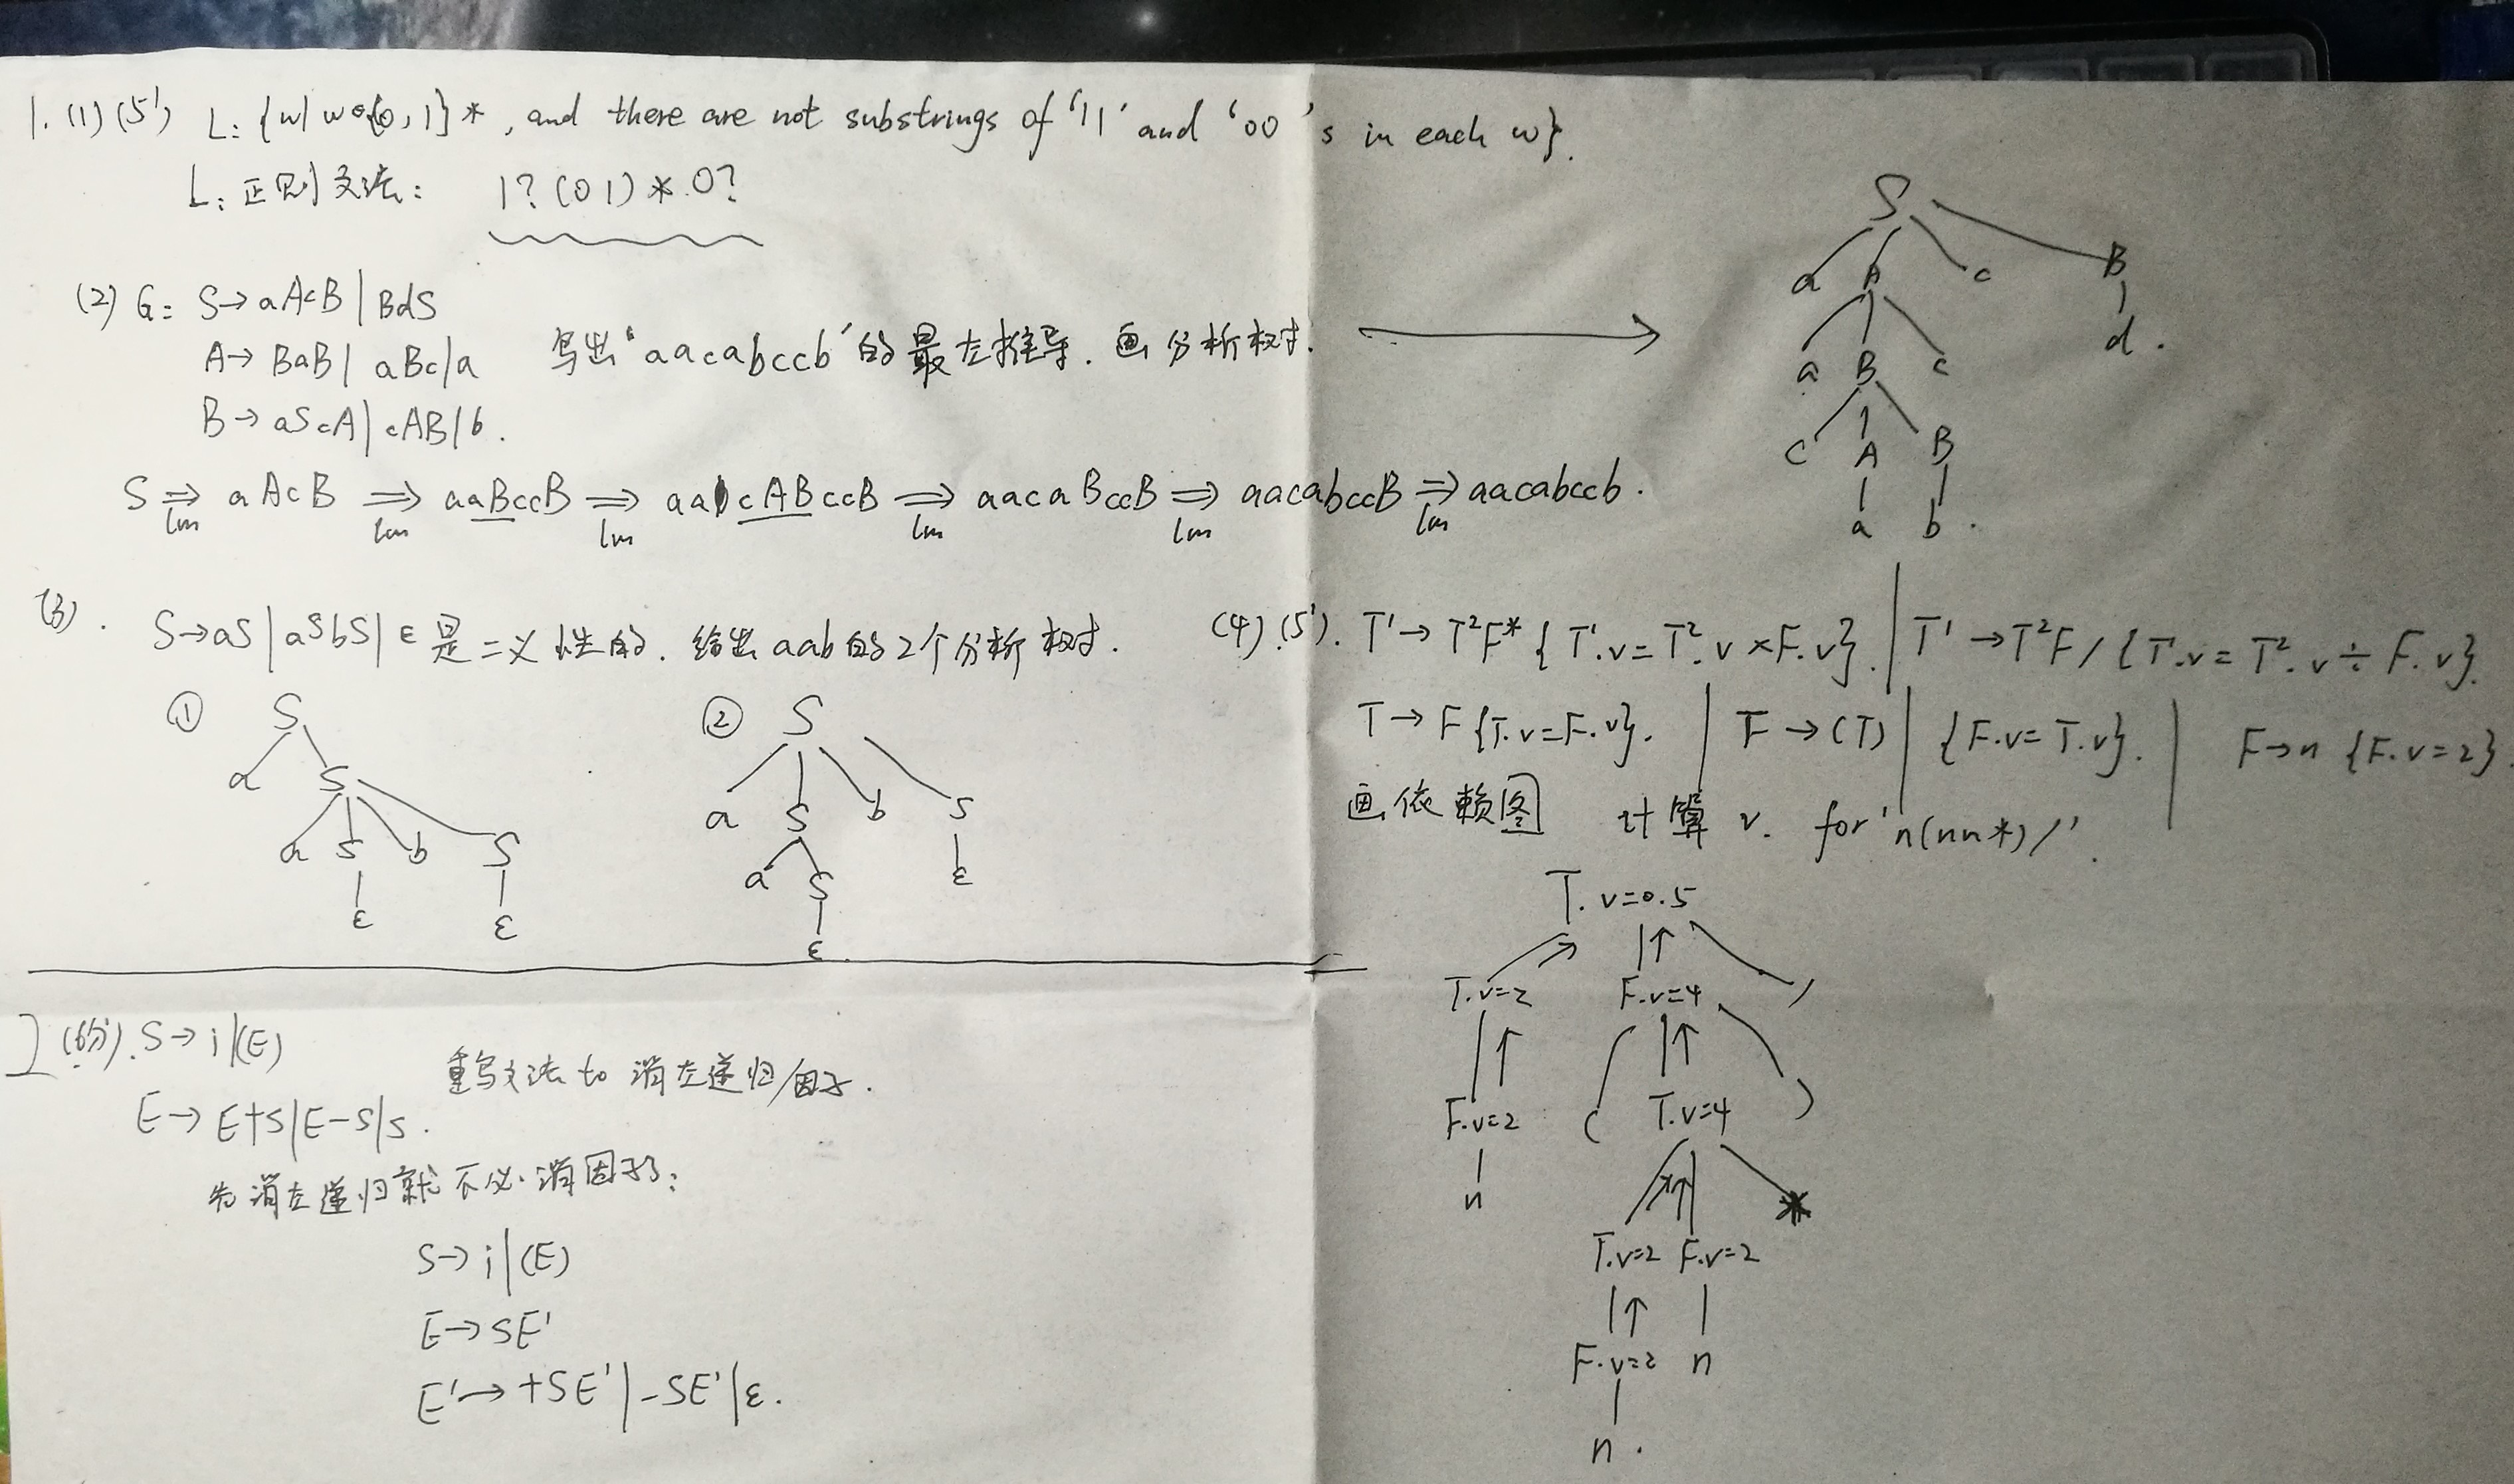 1. (1) (5') L: {w| w∈{0,1}*, and there are not substrings of '11' and '00's in each w}.
L: 正则文法: 1?(01)*0?
(2) G: S→aAcB|BdS
A→BaB|aBc|a 写出'aacabccb'的最左推导. 画分析树.
B→aScA|cAB|b.
S ⇒lm aAcB ⇒lm aaBccB ⇒lm aacABccB ⇒lm aacaBccB ⇒lm aacabccB ⇒lm aacabccb.
S
a A c B
a B c d.
c A B
a b.
(3). S→aS|aSbS|ε 是二义性的. 给出aab的2个分析树.
① S
a S
a S b S
ε ε
② S
a S b S
a S ε
ε
(4).(5'). T¹→T²F* {T¹.v=T².v×F.v}. | T¹→T²F/ {T¹.v=T².v÷F.v}.
T→F{T.v=F.v}. | F→(T) | {F.v=T.v}. | F→n {F.v=2}
画依赖图 计算v. for 'n(nn*)/'.
T.v=0.5
T.v=2 F.v=4 /
F.v=2 ( T.v=4 )
n
*
T.v=2 F.v=2
F.v=2 n
n.
2 (6分). S→i|(E)
重写文法 to 消左递归/因子.
E→E+S|E-S|S.
先消左递归就不必消因子了:
S→i|(E)
E→SE'
E'→+SE'|-SE'|ε.